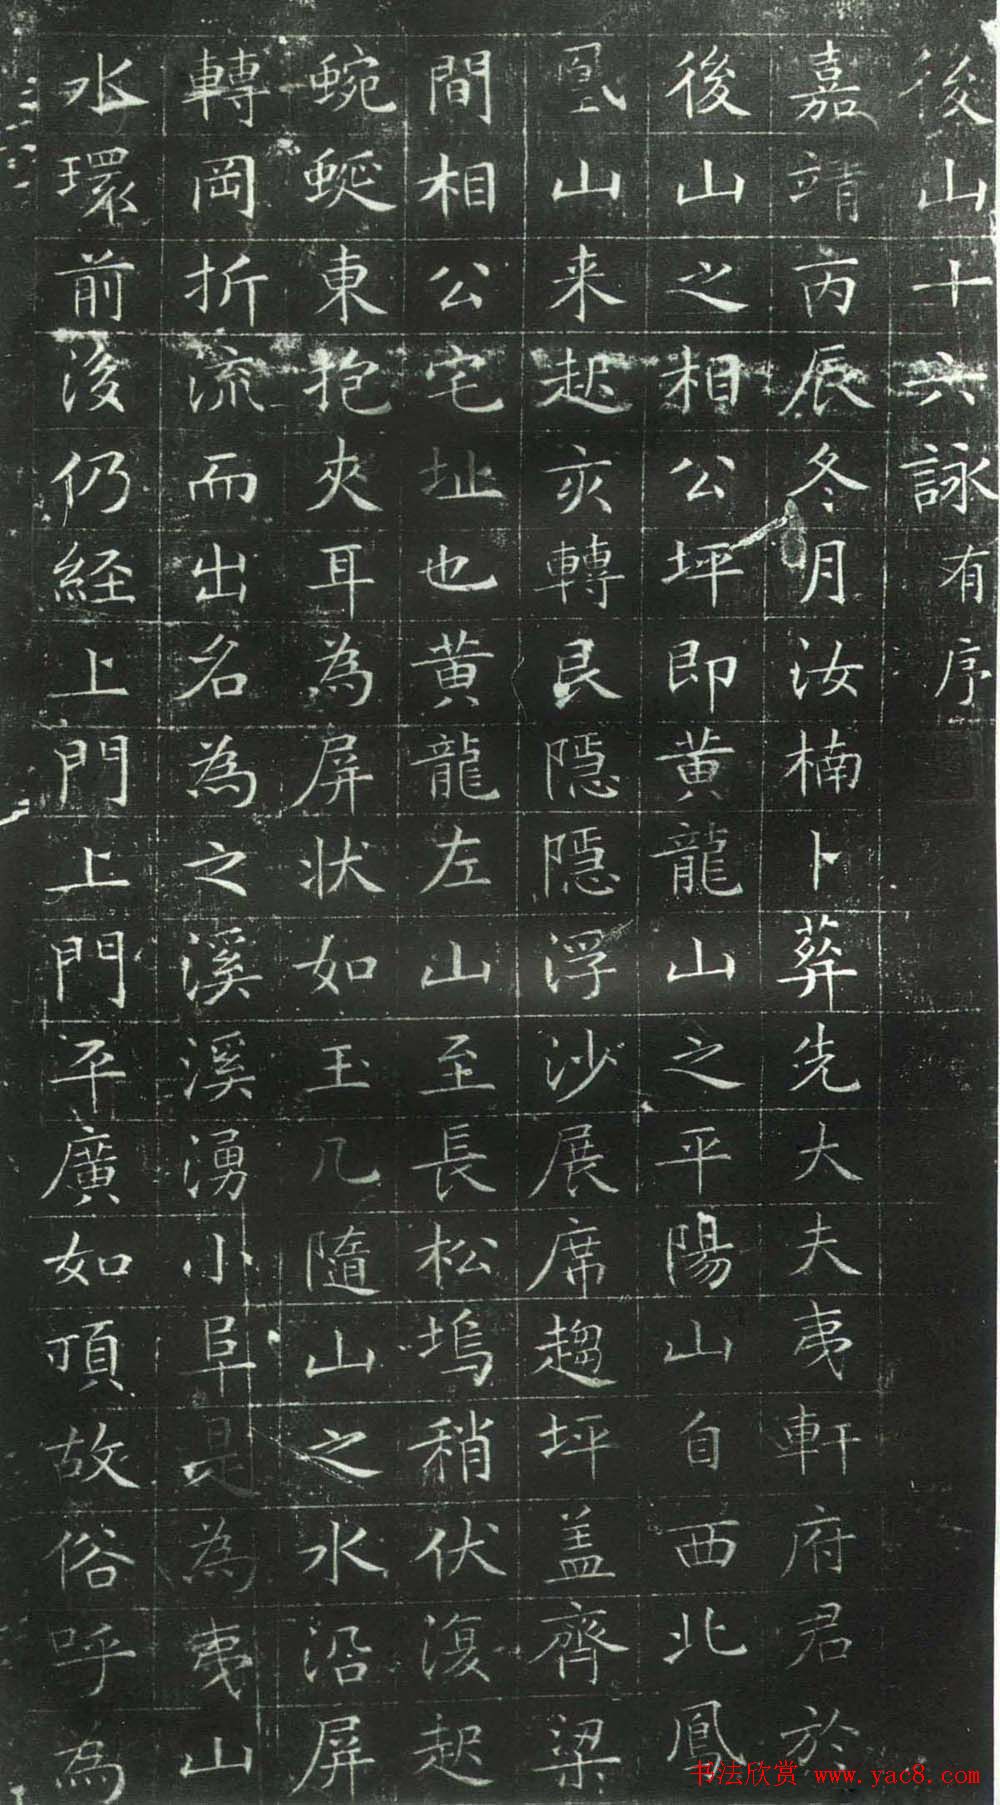 後山十六詠有序
嘉靖丙辰冬月汝楠卜葬先大夫夷軒府君於
後山之相公坪即黄龍山之平陽山自西北鳳
凰山来起亥轉艮隠隠浮沙展席趨坪盖齊梁
間相公宅址也黄龍左山至長松塢稍伏復起
蜿蜒東抱夾耳為屏状如玉几隨山之水沿屏
轉岡折流而出名為之溪溪湧小阜是為夷山
水環前後仍経上門上門平廣如頂故俗呼為
书法欣赏 www.yac8.com